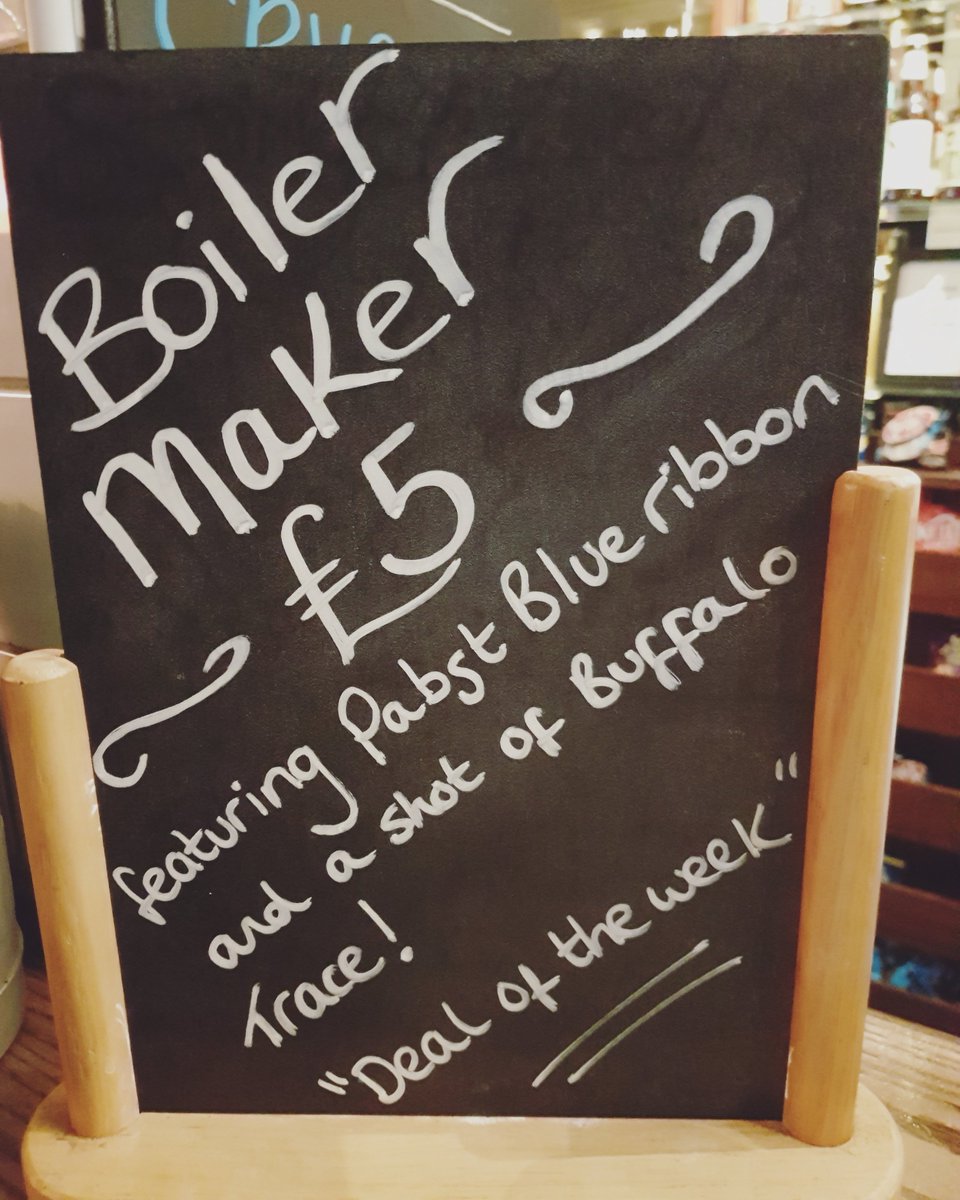 Boiler
Maker
£5
featuring Pabst Blue ribbon
and a shot of Buffalo
Trace!
"Deal of the week"